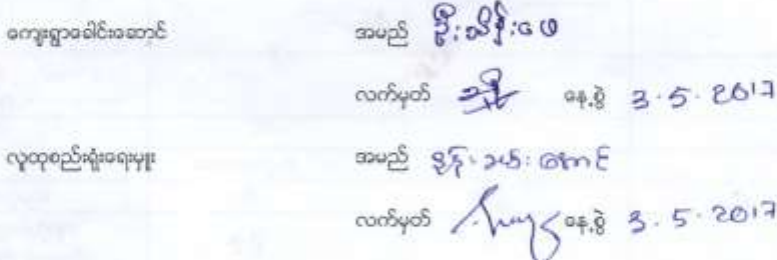 ကျေးရွာခေါင်းဆောင် အမည် ဦးသိန်းဖေ
လက်မှတ် နေ့စွဲ 3.5.2017
လူထုစည်းရုံးရေးမှူး အမည် အောင်
လက်မှတ် နေ့စွဲ 3.5.2017